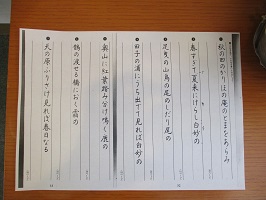 秋の田のかりほの庵のとまをあらみ
春すぎて夏来にけらし白妙の
足曳の山鳥の尾のしだり尾の
田子の浦にうち出でて見れば白妙の
奥山に紅葉踏み分け鳴く鹿の
鵲の渡せる橋におく霜の
天の原ふりさけ見れば春日なる